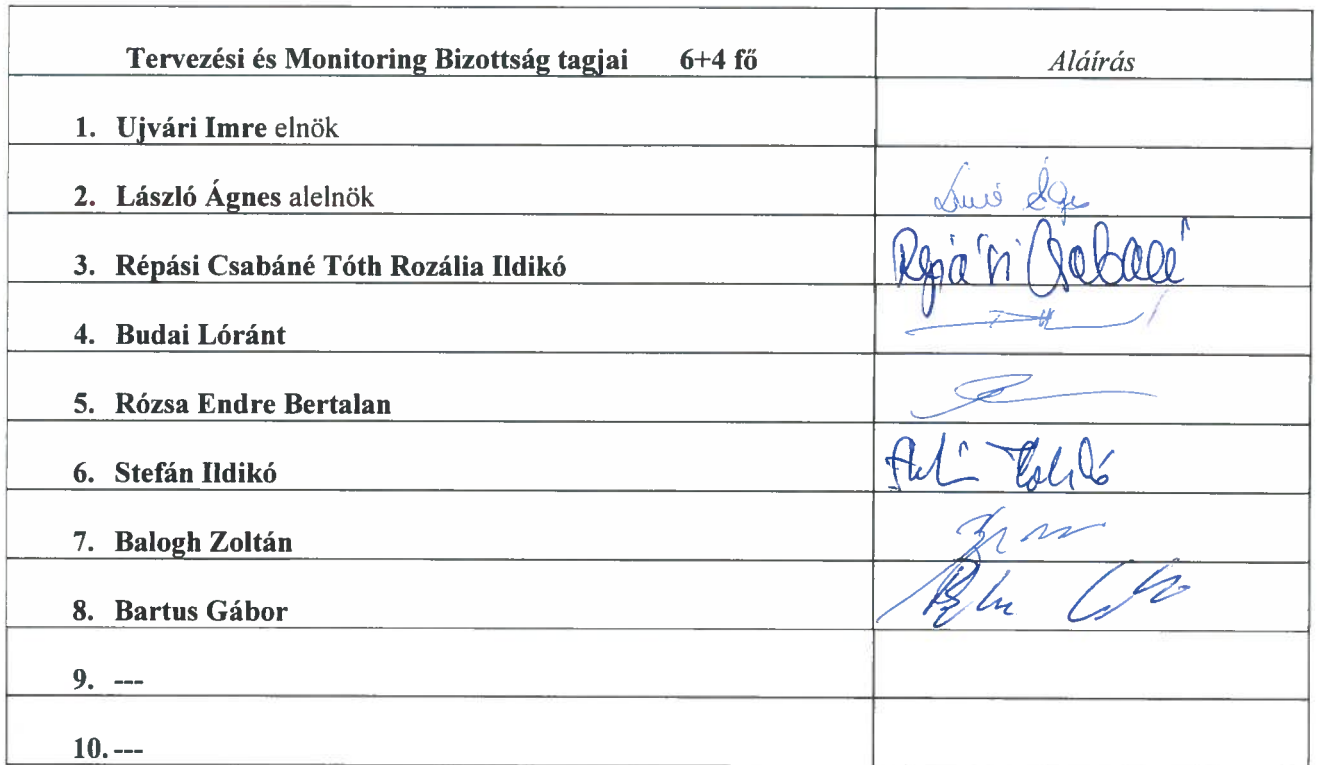 Tervezési és Monitoring Bizottság tagjai 6+4 fő Aláírás
1. Ujvári Imre elnök
2. László Ágnes alelnök
3. Répási Csabáné Tóth Rozália Ildikó Répási Csabáné
4. Budai Lóránt
5. Rózsa Endre Bertalan
6. Stefán Ildikó
7. Balogh Zoltán
8. Bartus Gábor
9. ---
10. ---